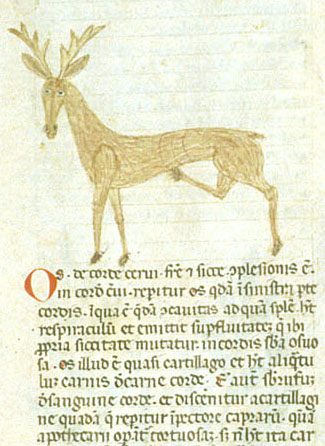 Os. de corde cerui. fře ⁊ sicce ↄplesionis ē.
in cord̄ c̄ui. repitur os qdā ī sinistri pte
cordis. ī qua ē qda ↄcauitas ad quā splē. ht̄
respiraculū et emittit supfluitatez q̇ ibi
ppria siccitate mutatur. in cordis sb̄a osuo
sa. os illud ē quasi cartillago et ht̄ aliq̄tu
luz carnis d̄ carne corde. aut sbrufuz
d̄ sanguine corde. et discenitur a cartillagi
ne quadā q̇ repitur ī pectore capraruz. quā
apothecarii tortuosaz. sȝ nō ht̄ ita car